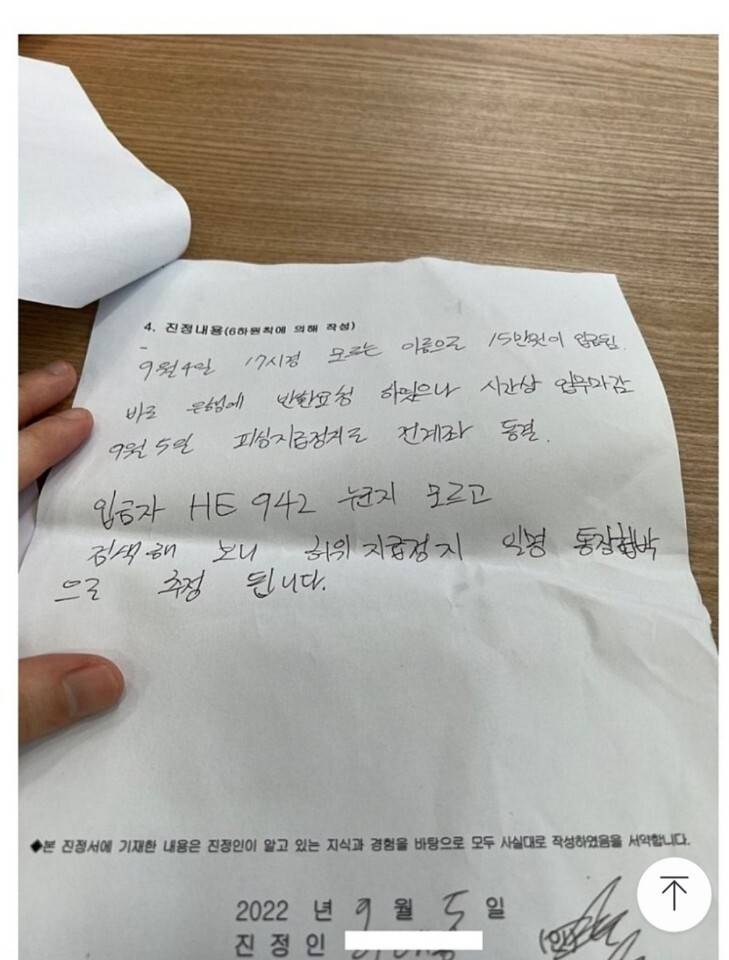 4. 진정내용(6하원칙에 의해 작성)
9월4일 17시경 모르는 이름으로 15만원이 입금됨.
바로 은행에 반환요청 하였으나 시간상 업무마감
9월 5일 피싱지급정지로 전계좌 동결.
입금자 HE 942 누군지 모르고
검색해 보니 허위 지급정지 일명 통장협박
으로 추정 됩니다.
◆본 진정서에 기재한 내용은 진정인이 알고 있는 지식과 경험을 바탕으로 모두 사실대로 작성하였음을 서약합니다.
2022 년 9 월 5 일
진정인 (인)